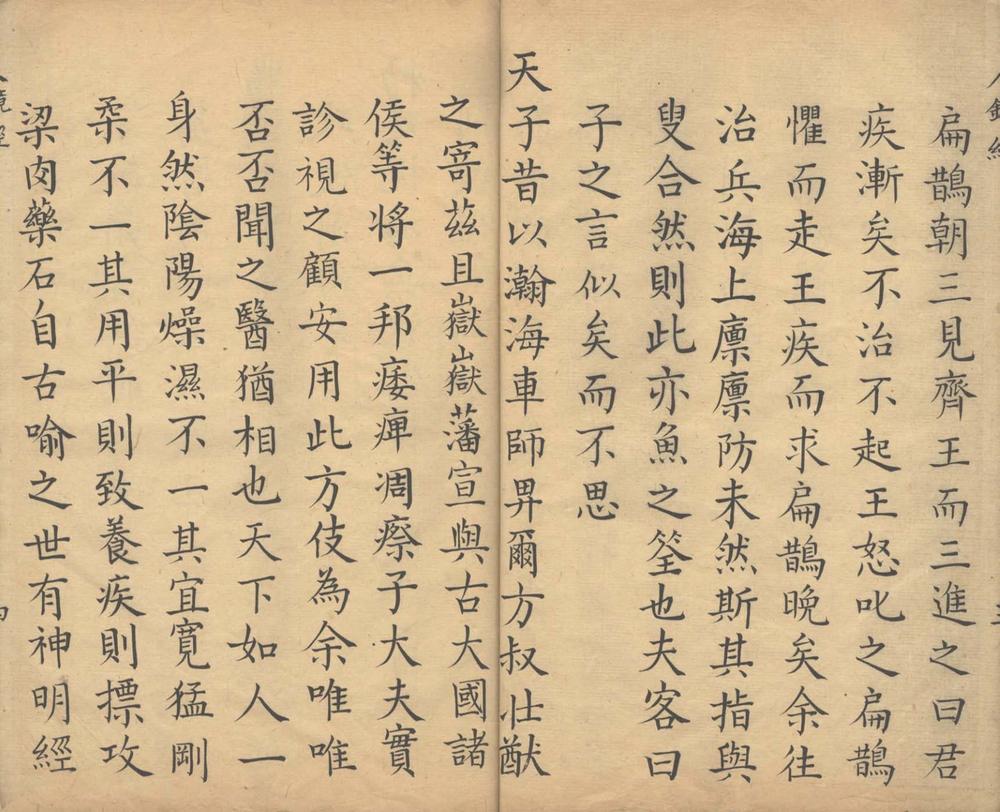 扁鵲朝三見齊王而三進之曰君
疾漸矣不治不起王怒叱之扁鵲
懼而走王疾而求扁鵲晚矣余往
治兵海上廪廪防未然斯其指與
叟合然則此亦魚之筌也夫客曰
子之言似矣而不思
天子昔以瀚海車師畀爾方叔壮猷
之寄茲且嶽嶽藩宣與古大國諸
侯等将一邦痿痺凋瘵子大夫實
診視之顧安用此方伎為余唯唯
否否聞之醫猶相也天下如人一
身然陰陽燥濕不一其宜寛猛剛
柔不一其用平則致養疾則摽攻
梁肉藥石自古喻之世有神明經